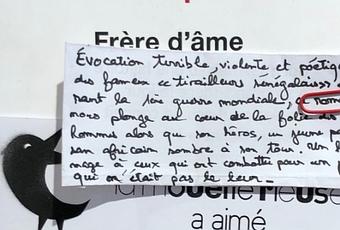 Frère d'âme
Évocation terrible, violente et poétiq
des fameux "tirailleurs sénégalais"
rant la 1ère guerre mondiale, ce rom
nous plonge au cœur de la folie des
hommes alors que son héros, un jeune pa
san africain sombre à son tour. Un
mage à ceux qui ont combattu pour un p
qui n'était pas le leur.
la mouette rieuse
a aimé